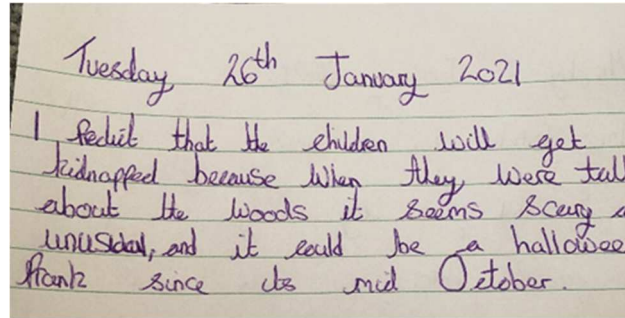 Tuesday 26th January 2021
I Pedict that the children will get
kidnapped because when they were tall
about the woods it seems scary a
unusual, and it could be a hallowee
Prank since its mid October.